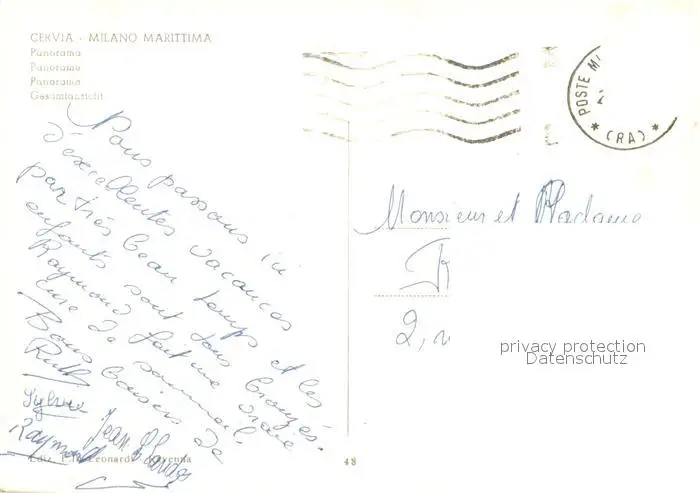 CERVIA - MILANO MARITTIMA
Panorama
Panorama
Panorama
Gesamtansicht
POSTE M
(RA)
Nous passons ici
d'excellentes vacances
par très beau temps et les
enfants sont tous bronzés.
Raymond fait une vraie
cure de sommeil.
Bons baisers de
Ruth
Sylvie
Jean Claude
Raymond
Ediz. Leonardi Ravenna
48
Monsieur et Madame
2, r
privacy protection
Datenschutz